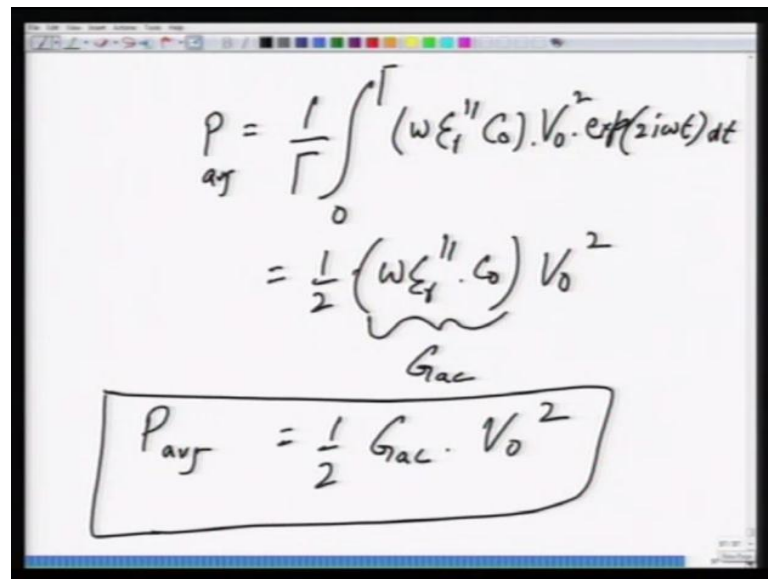 P_avg = 1/T ∫_0^T (ω ε_r'' C_0) . V_0^2 . exp(2iωt) dt
= 1/2 (ω ε_r'' . C_0) V_0^2
G_ac
P_avg = 1/2 G_ac . V_0^2